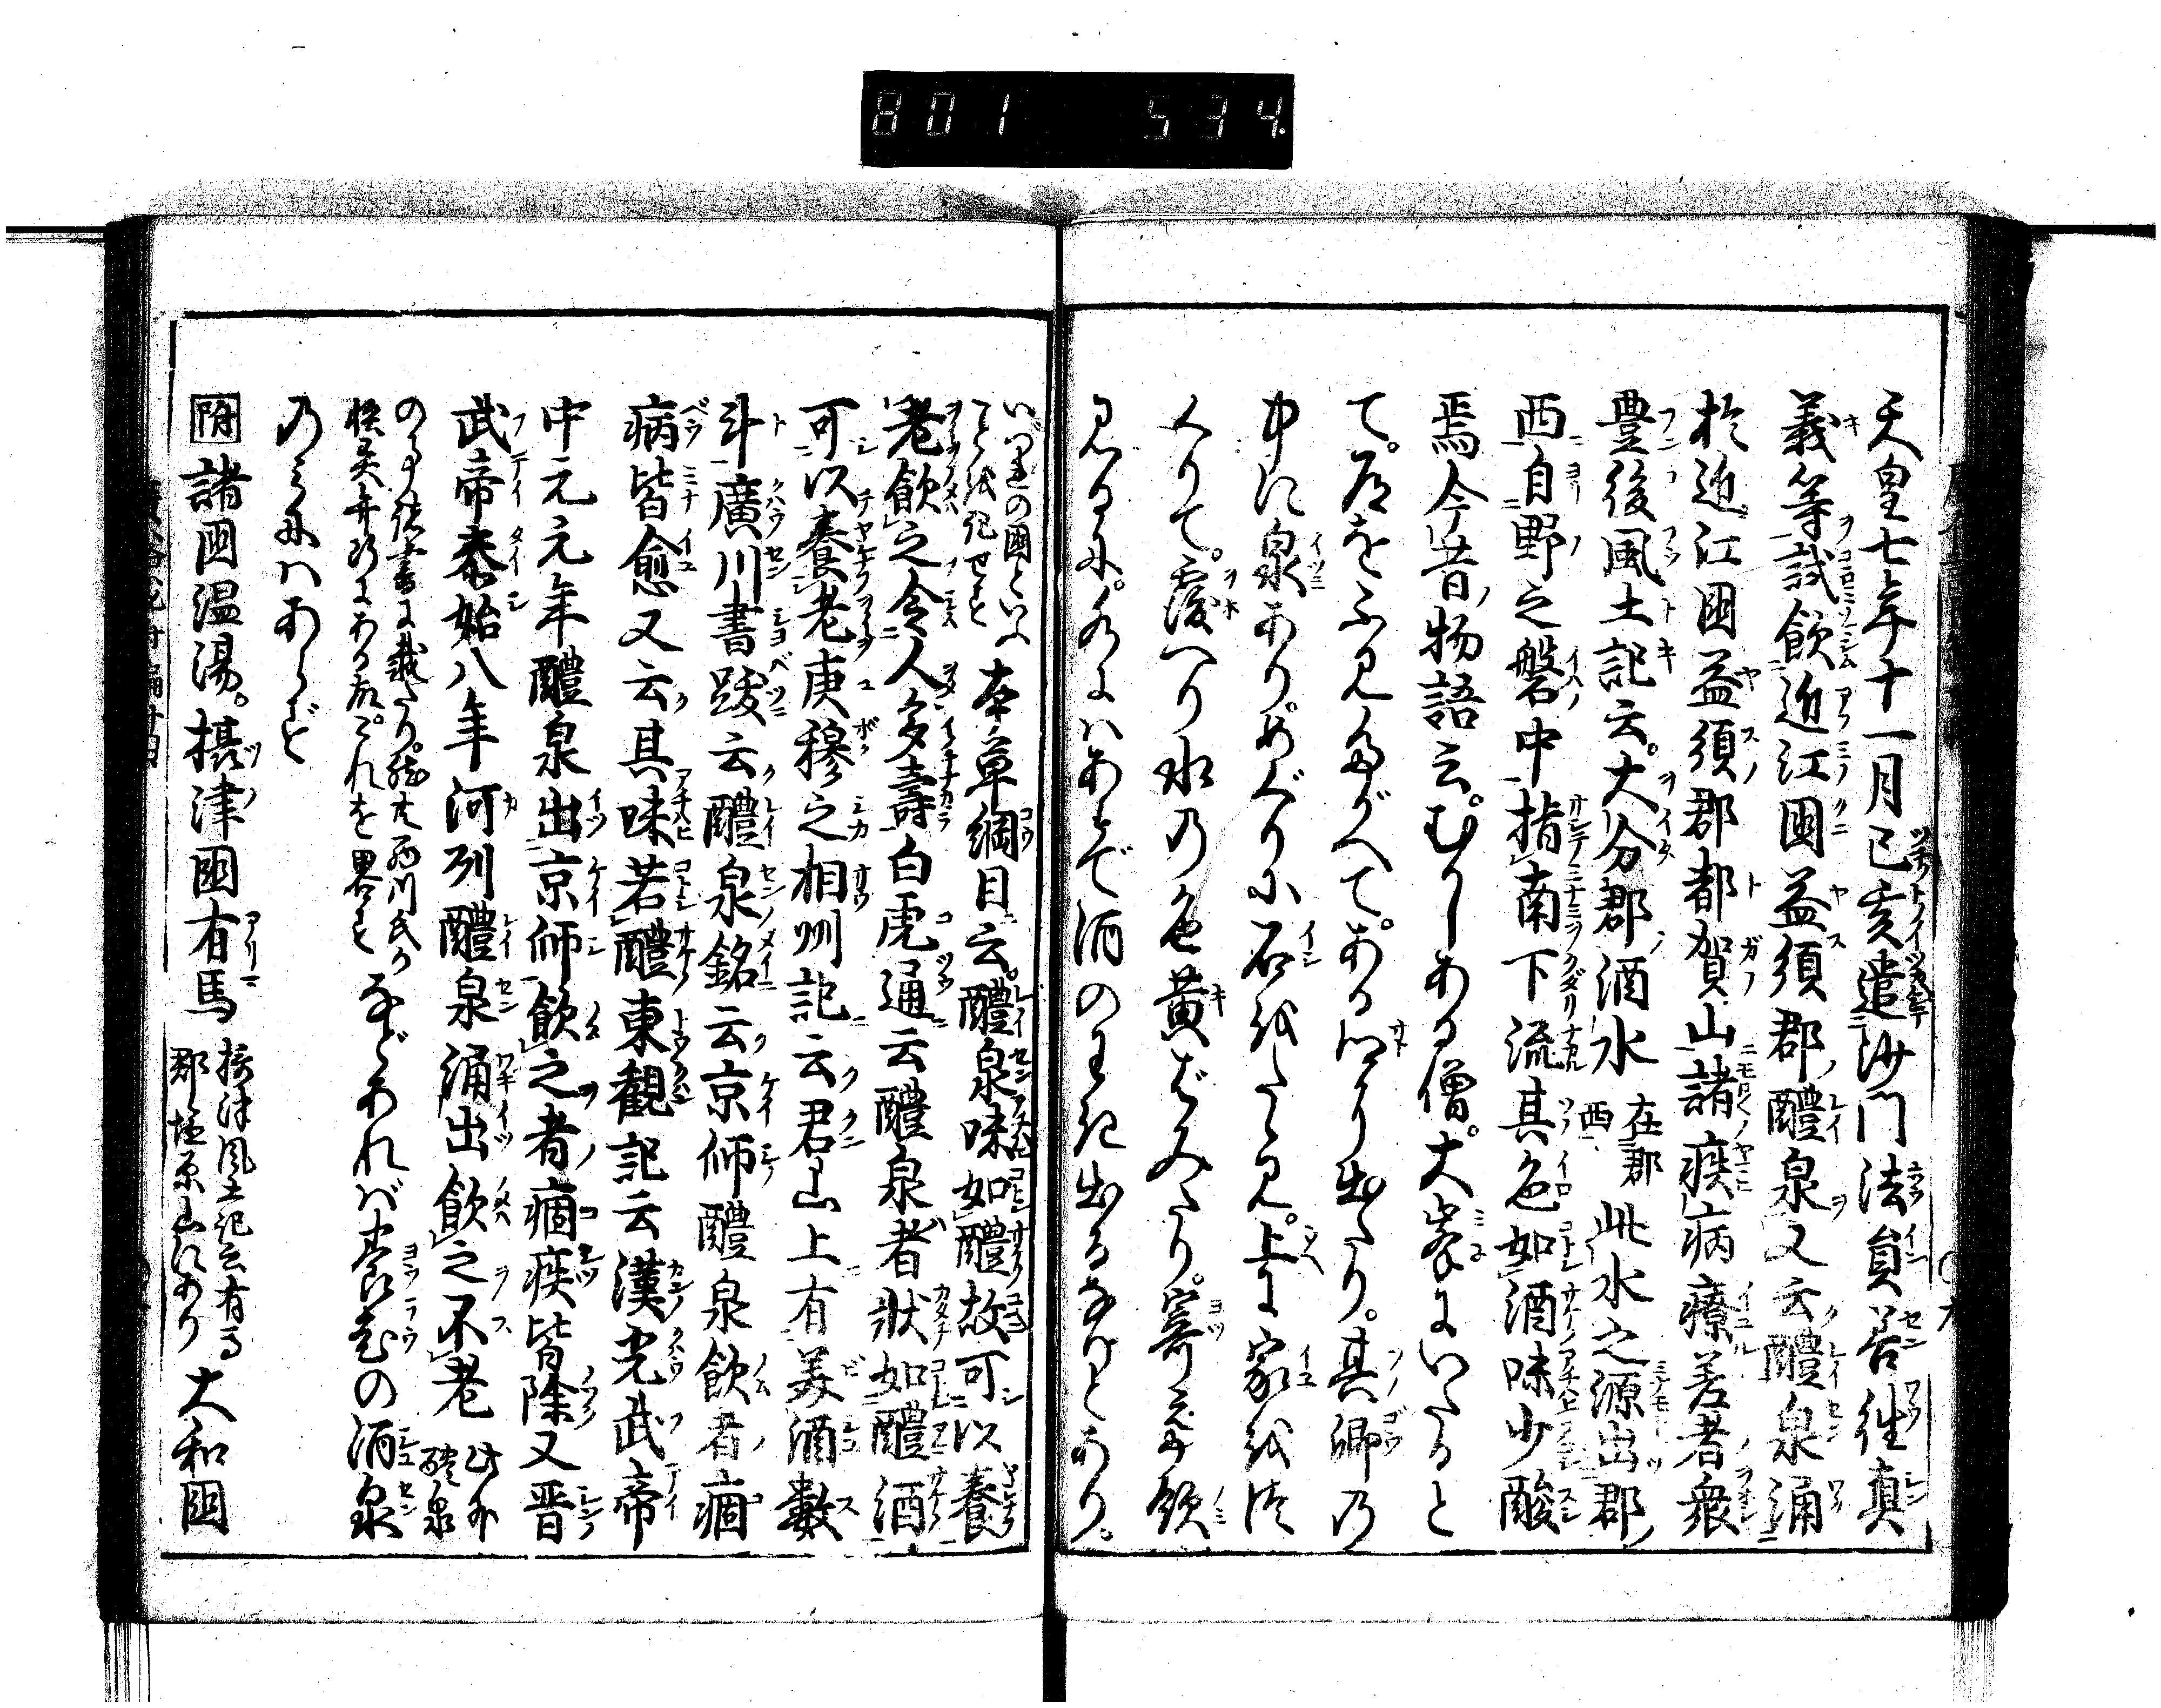 801 534.
天皇七年十一月己亥遣沙門法員善往真
義等試飲近江国益須郡醴泉又云醴泉涌
於近江国益須郡都賀山諸疾病療差者衆
豊後風土記云。大分郡酒水 在郡西 此水之源出郡
西自野之磐中指南下流其色如酒味少酸
焉今昔物語云。むかしある僧。大峯にいたると
て。道をふみたがへて。ある所より出たり。其郷乃
中に泉あり。めぐりに石をたゝみ。上に家を作
入りて。覆へり水の色黄ばみたり。寄て飲
みるに。水にはあらで酒のわき出るなりとあり。
本草綱目云。醴泉味如醴故可以養
老飲之令人多壽白虎通云醴泉者状如醴酒
可以養老庚穆之相州記云君山上有美酒數
斗廣川書跋云醴泉銘云京師醴泉飲者痼
病皆愈又云其味若醴東觀記云漢光武帝
中元元年醴泉出京師飲之者痼疾皆除又晋
武帝泰始八年河列醴泉涌出飲之不老 此外醴泉
などあれば養老の酒泉
のみにはあらず
附 諸国温湯。摂津国有馬 摂津風土記云有馬郡塩原山にあり 大和国